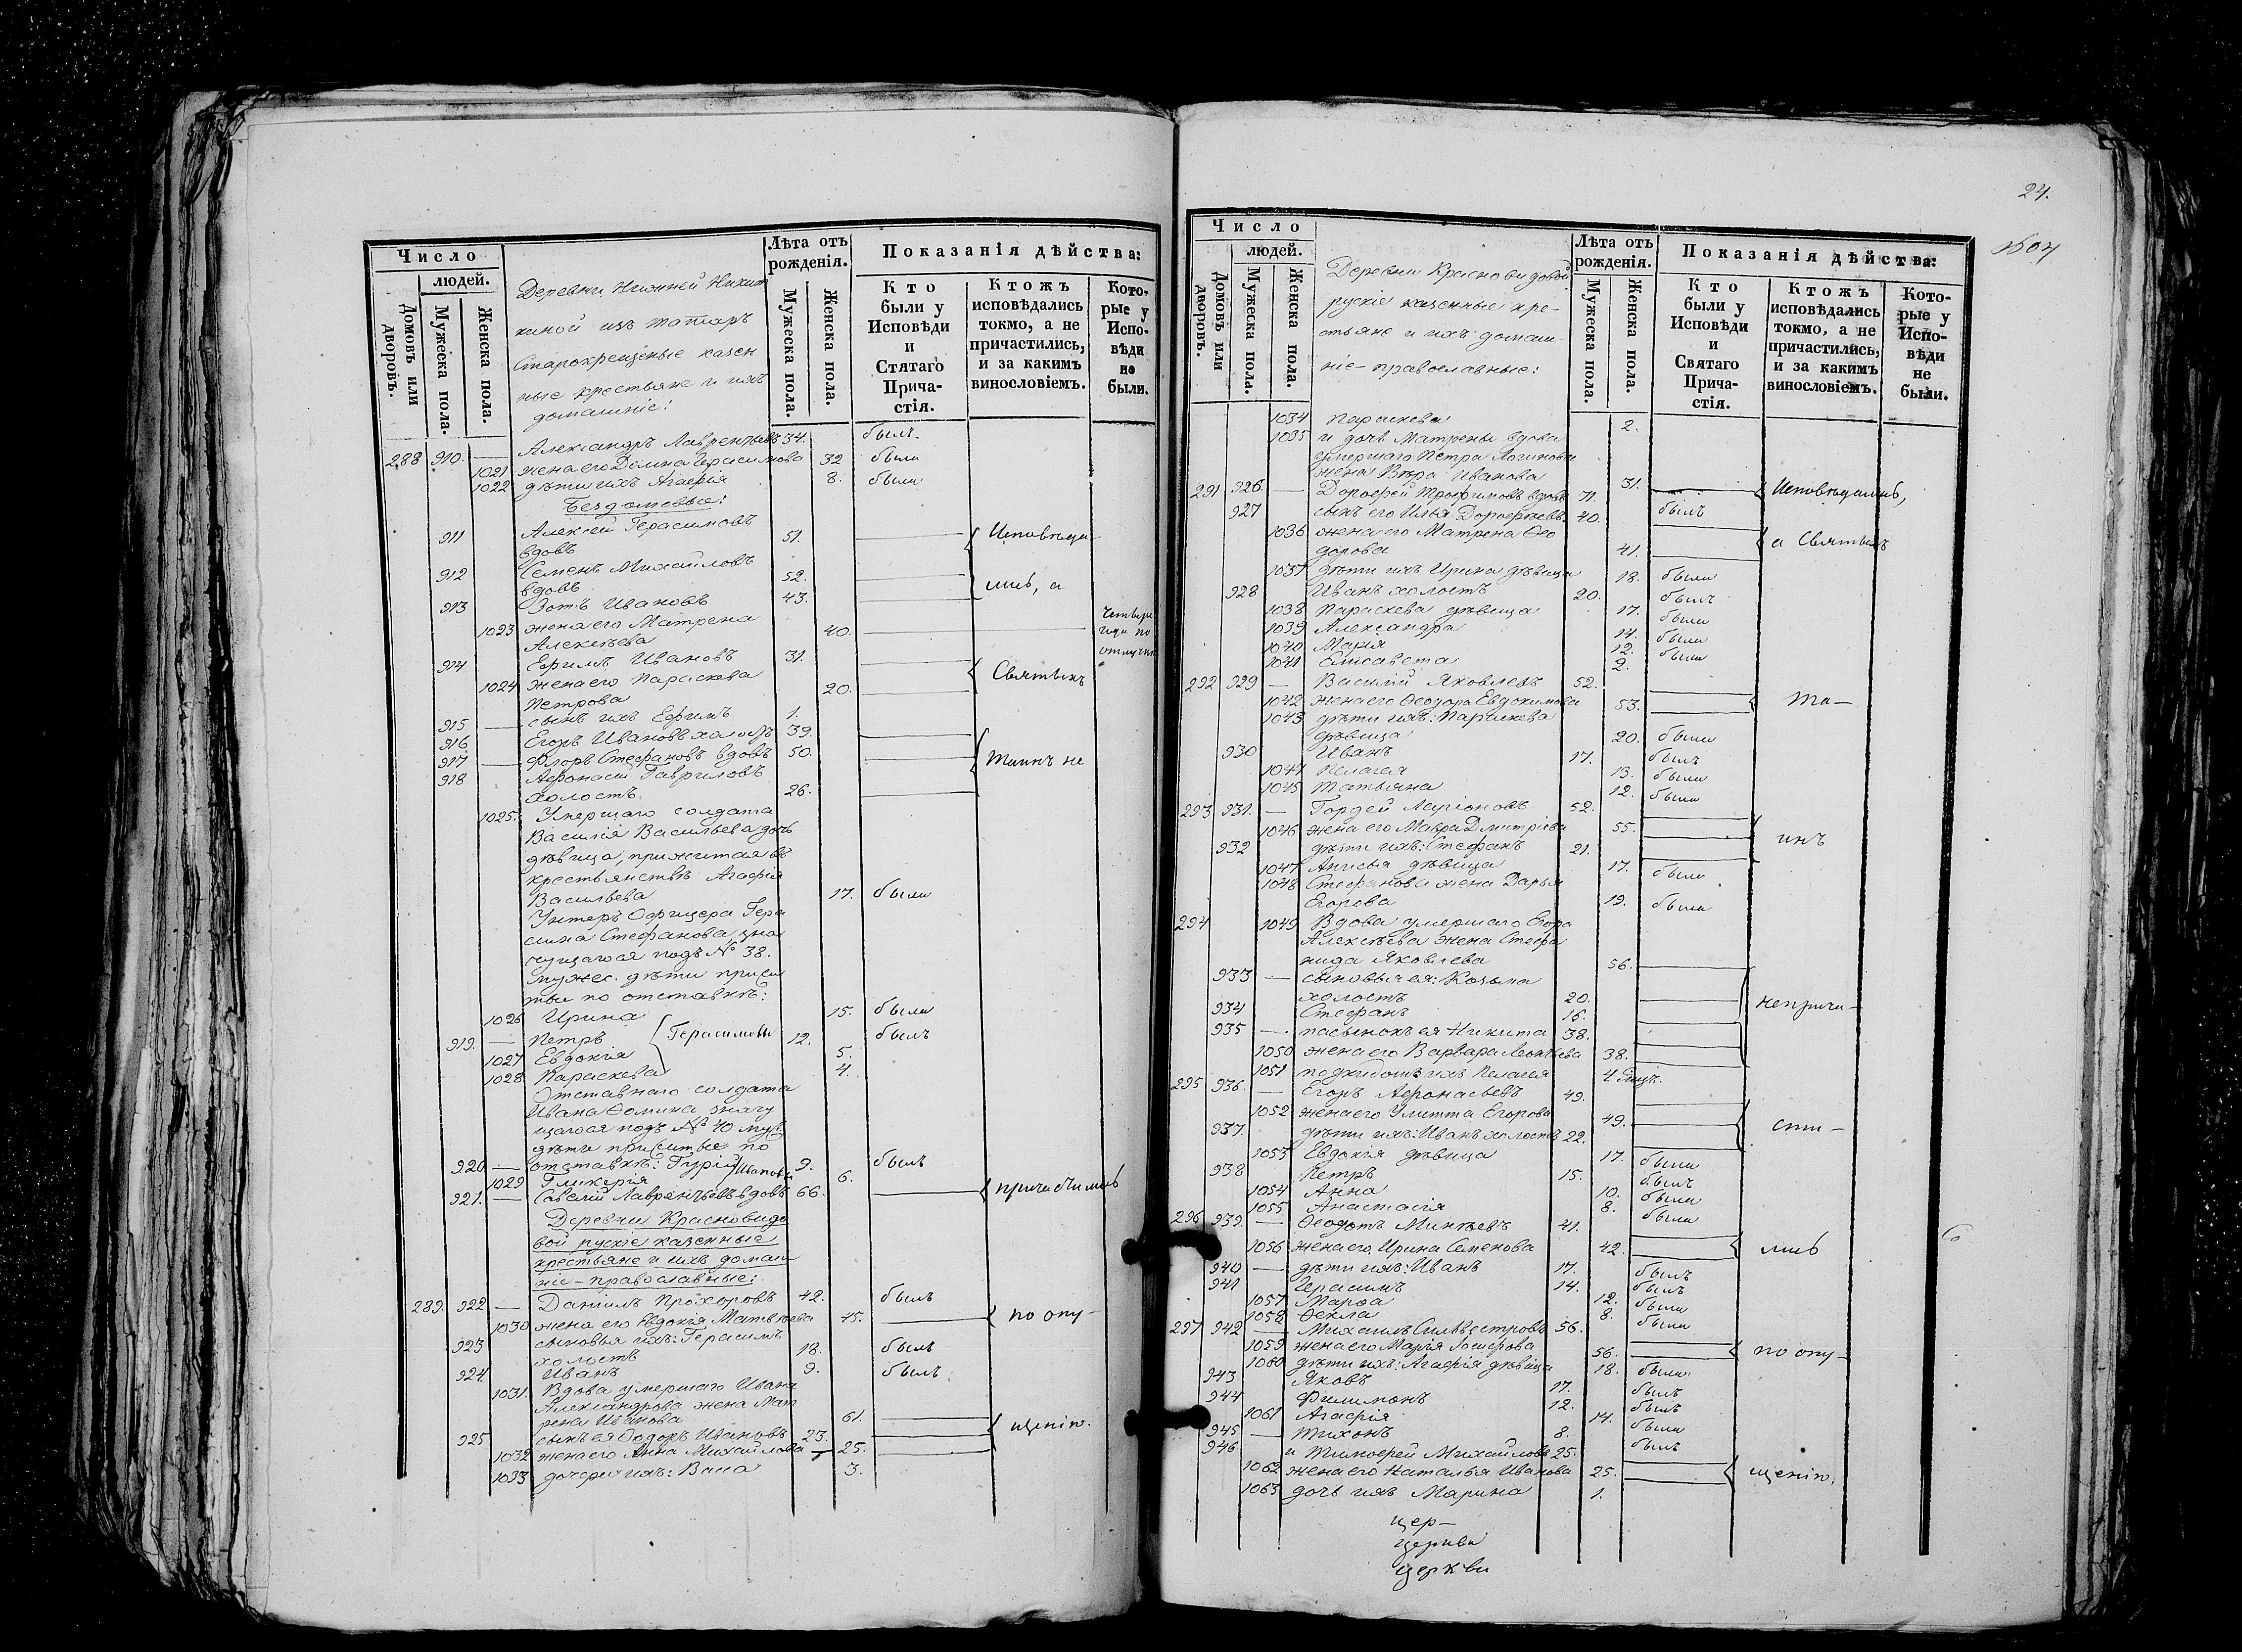 Число
людей.
Домовъ или дворовъ.
Мужеска пола.
Женска пола.
Деревни Нижней Никит
киной изъ татаръ
Старокрещеные казен
ные крестьяне и ихъ
домашніе:
Лѣта отъ рожденія.
Мужеска пола.
Женска пола.
Показанія дѣйства:
Кто были у Исповѣди и Стятаго Прича-стія.
Ктожъ исповѣдались токмо, а не причастились, и за какимъ винословіемъ.
Кото-рые у Испо-вѣди не были.
288 910. — Александръ Лаврентьевъ 34. былъ.
1021 жена его Домна Герасимова 32 была
1022 дѣти ихъ Агафія 8. была
Бездомовые:
911 Алексѣй Герасимовъ
вдовъ 51. Исповѣда-
912 Семенъ Михайловъ
вдовъ 52. лись, а
913 Зотъ Ивановъ 43.
1023 жена его Матрена
Алексѣева 40. четыре года по отлучкѣ
914 Ефимъ Ивановъ 31.
1024 жена его Параскева
Петрова 20. Святыхъ
915 — сынъ ихъ Ефимъ 1.
916 Егоръ Ивановъ холостъ 39.
917 — Флоръ Стефановъ вдовъ 50.
918 Афонасій Гавриловъ
холостъ 26. Таинъ не
1025. Умершаго солдата
Василія Васильева дочь
дѣвица, прижитая въ
крестьянствѣ Агафія
Васильева 17. была
Унтеръ Офицера Гера
сима Стефанова, зна
чущагося подъ № 38.
мужес. дѣти прижи
тые по отставкѣ:
1026 Ирина 15. была
919. — Петръ Герасимовы 12. былъ
1027 Евдокія 5.
1028 Параскева 4.
Отставнаго солдата
Ивана Ѳомина значу
щагося подъ № 40 муж.
дѣти прижитые по
920 — отставкѣ: Гурій Ивановы 9. былъ
1029 Гликерія 6.
921. — Савелій Лаврентьевъ вдовъ 66. причастились
Деревни Красновидо
вой рускіе казенные
крестьяне и ихъ домаш
ніе — православные:
289. 922 — Даніилъ Прохоровъ 42. былъ
1030 жена его Евдокія Матвѣева 45. по опу-
923 сыновья ихъ: Герасимъ
холостъ 18. былъ
924 Иванъ 9. былъ
1031. Вдова умершаго Ивана
Александрова жена Мат
рена Иванова 61.
925 сынъ ея Ѳедоръ Ивановъ 23. щенію.
1032 жена его Анна Михайлова 25.
1033 дочери ихъ: Васса 3.
24.
Число
людей.
Домовъ или дворовъ.
Мужеска пола.
Женска пола.
Деревни Красновидовой
рускіе казенные кре-
стьяне и ихъ домаш-
ніе — православные:
Лѣта отъ рожденія.
Мужеска пола.
Женска пола.
Показанія дѣйства:
Кто были у Исповѣди и Святаго Прича-стія.
Ктожъ исповѣдались токмо, а не причастились, и за какимъ винословіемъ.
Кото-рые у Испо-вѣди не были.
1034 Параскева 2.
1035 и дочь Матрены вдова
умершаго Петра Логинова
жена Вѣра Иванова 31. Исповѣдались,
291 926. — Дороѳей Трофимовъ вдовъ 71.
927 сынъ его Илья Дороѳеевъ 40. былъ
1036 жена его Матрена Ѳео
дорова 41. а Святыхъ
1037 дѣти ихъ Ирина дѣвица 18. была
928 Иванъ холостъ 20. былъ
1038 Параскева дѣвица 17. была
1039 Александра 14. была
1040 Марія 12. была
1041 Елисавета 2.
292 929 — Василій Яковлевъ 52.
1042 жена его Ѳеодора Евдокимова 53. Та-
1043 дѣти ихъ: Параскева
дѣвица 20. была
930 Иванъ 17. былъ
1044 Пелагея 13. была
1045 Татьяна 12. была
293 931. — Гордей Ларіоновъ 52.
1046 жена его Мавра Дмитріева 55. инъ
932 дѣти ихъ: Стефанъ 21.
1047 Анисья дѣвица 17. была
1048 Стефанова жена Дарья
Егорова 19. была
294 1049 Вдова умершаго Егора
Алексѣева жена Стефа
нида Яковлева 56.
933 — сыновья ея: Козьма
холостъ 20. неприча-
934 Стефанъ 16.
935 — пасынокъ ея Никита 38.
1050 жена его Варвара Леонтьева 38.
1051 подкидошъ ихъ Пелагея 4 мѣц.
295 936. — Егоръ Афонасьевъ 49.
1052 жена его Улитта Егорова 49. сти-
937. дѣти ихъ: Иванъ холостъ 22.
1053 Евдокія дѣвица 17. была
938 Петръ 15. былъ
1054 Анна 10. была
1055 Анастасія 8. была
296 939. — Ѳеодотъ Минѣевъ 41.
1056 жена его, Ирина Семенова 42. лись
940 — дѣти ихъ: Иванъ 17. былъ
941 Герасимъ 14. былъ
1057 Марѳа 12. была
1058 Ѳекла 8. была
297 942 — Михаилъ Сильвестровъ 56.
1059 жена его Марія Іосифова 56. по опу-
1060 дѣти ихъ: Агафія дѣвица 18. была
943 Яковъ 17. былъ
944 Филимонъ 12. былъ
1061 Агафія 14. была
945 — Тихонъ 8. былъ
946 и Тимоѳей Михайловъ 25.
1062 жена его Наталья Иванова 25. щенію.
1063 дочь ихъ Марина 1.
цер-
церкви
церкви